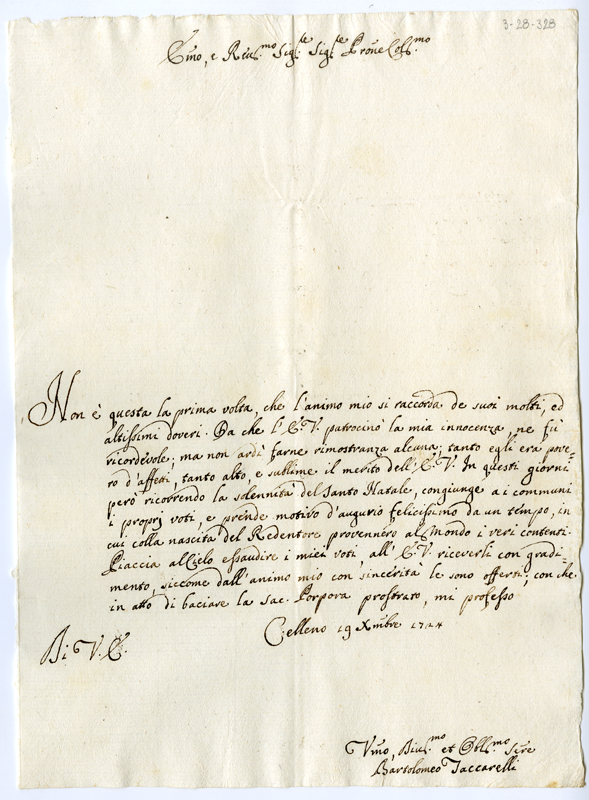 3-28-328
Em̃o, e Reu.mo Sig.re Sig.re Prõne Col.mo
Non è questa la prima volta, che l'animo mio si raccorda de suoi molti, ed
altissimi doveri. Da che l'E.V. patrocinò la mia innocenza, ne fù
ricordevole; ma non ardì farne rimostranza alcuna; tanto egli era pove=
ro d'affetti, tanto alto, e sublime il merito dell'E.V. In questi giorni
però ricorrendo la solennità del Santo Natale, congiunge a i communi
i proprj voti, e prende motivo d'augurio felicissimo da un tempo, in
cui colla nascita del Redentore provennero al Mondo i veri contenti.
Piaccia al Cielo essaudire i miei voti all'E.V. riceverli con gradi
mento, siccome dall'animo mio con sincerità le sono offerti; con che
in atto di baciare la Sac. Porpora prostrato, mi professo
Celleno 19 Xmbre 1724
Di V.E.
Vm̃o, Diu.mo et Obl.mo Ser̃e
Bartolomeo Taccarelli